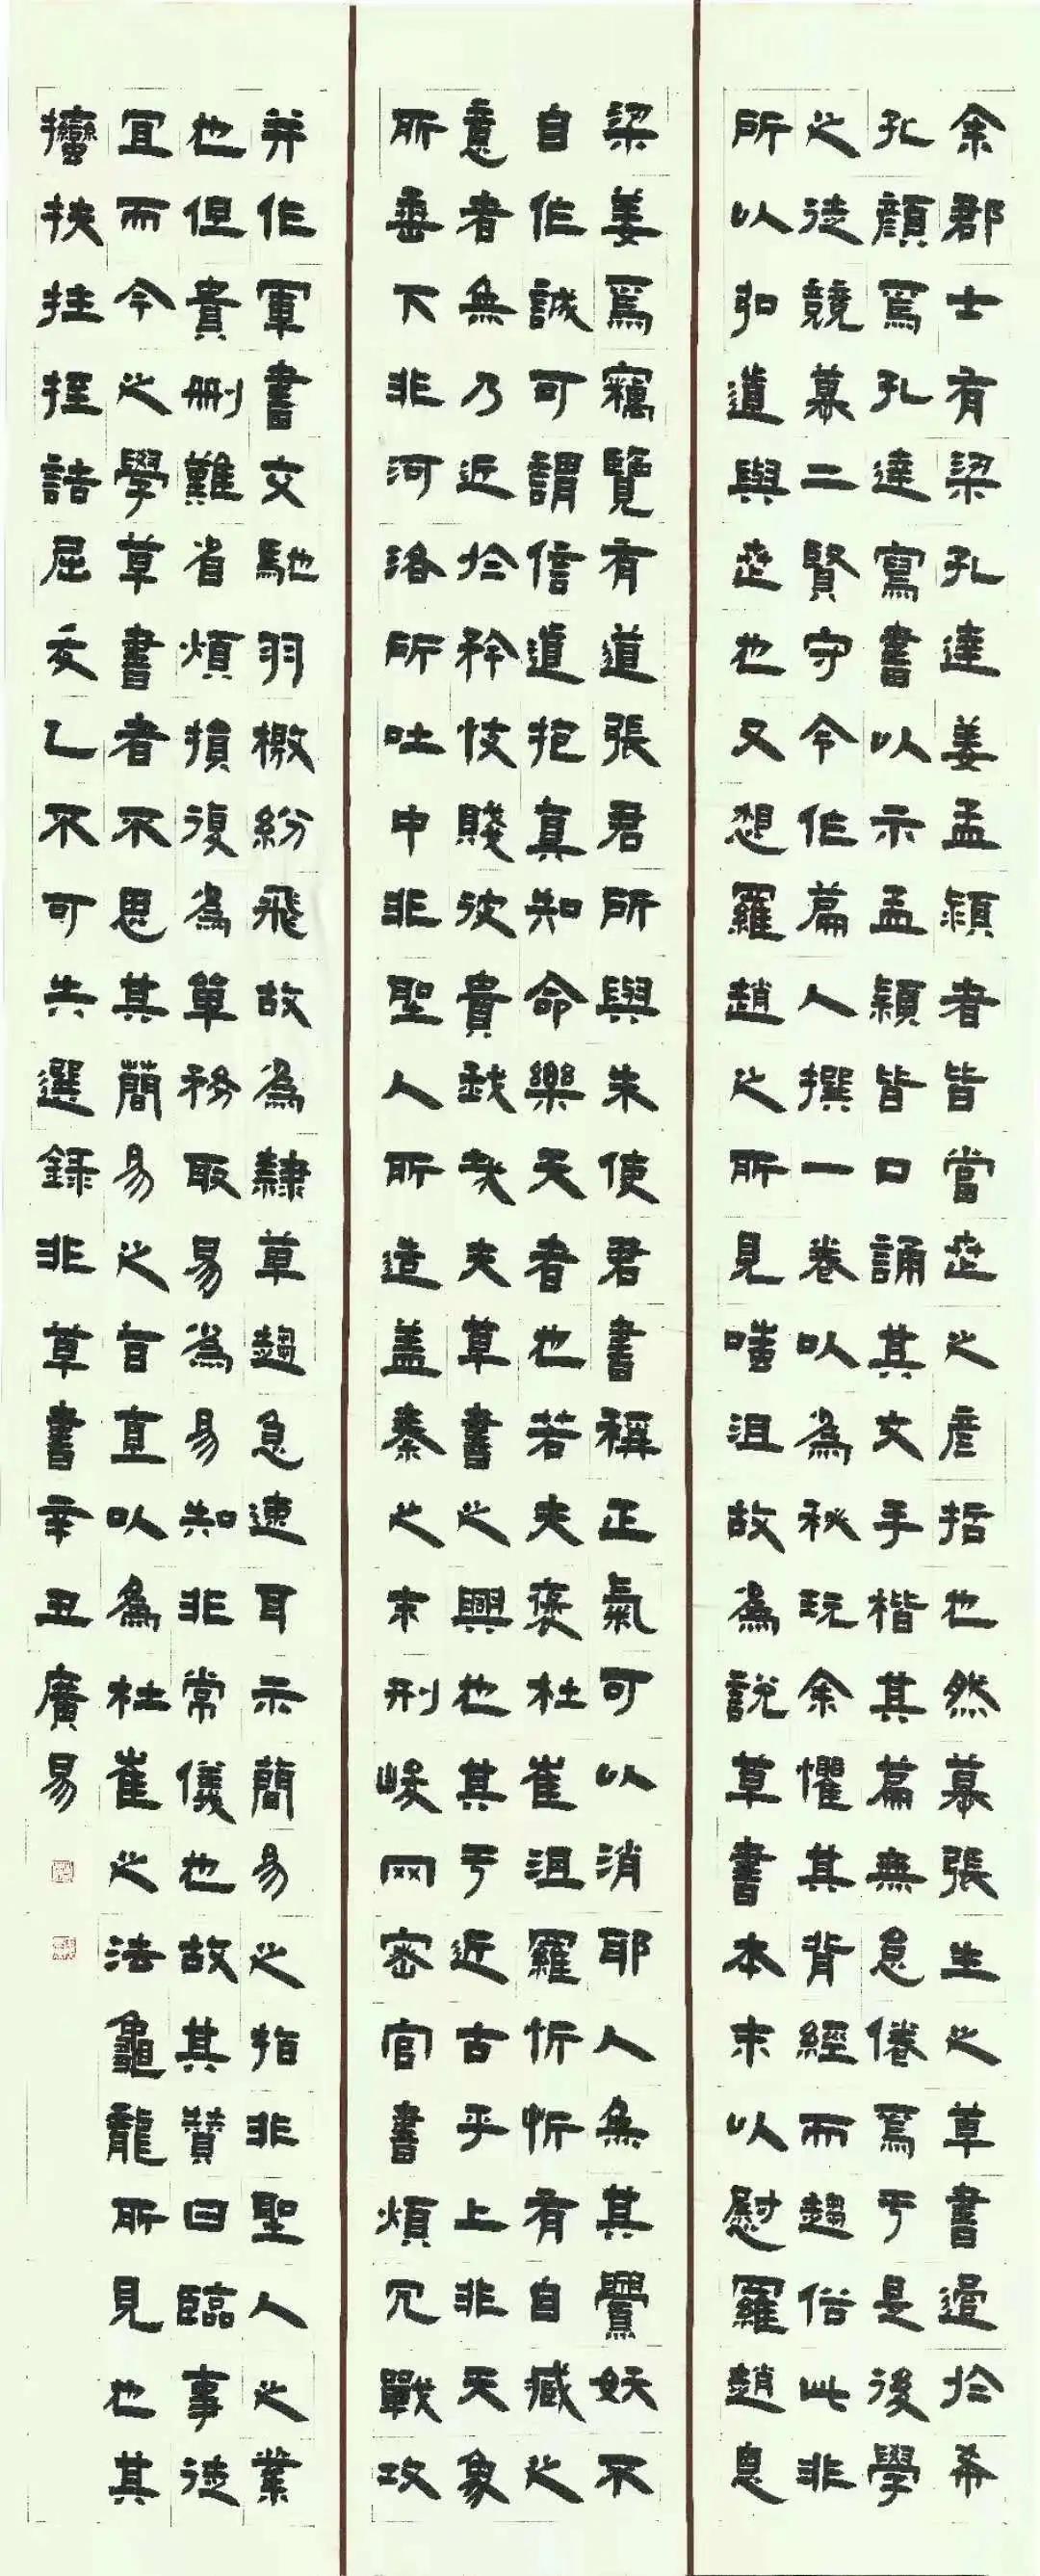 余郡士有梁孔達姜孟穎者皆當世之彦哲也然慕張生之草書過於希
孔顏焉孔達寫書以示孟穎皆口誦其文手楷其篇無怠倦焉于是後學
之徒競慕二賢守令作篇人撰一卷以為秘玩余懼其背經而趨俗此非
所以弘道興世也又想羅趙之所見嗤沮故為說草書本末以慰羅趙息
梁姜焉竊覽有道張君所與朱使君書稱正氣可以消耶人無其釁妖不
自作誠可謂信道抱真知命樂天者也若夫褒杜崔沮羅忻忻有自臧之
意者無乃近於矜忮賤彼貴我哉夫草書之興也其于近古乎上非天象
所垂下非河洛所吐中非聖人所造蓋秦之末刑峻網密官書煩冗戰攻
并作軍書交馳羽檄紛飛故為隸草趨急速耳示簡易之指非聖人之業
也但貴刪難省煩損復為單務取易為易知非常儀也故其贊曰臨事徒
宜而今之學草書者不思其簡易之旨直以為杜崔之法龜龍所見也其
𢺲扶拄挃詰屈犮乙不可失選錄非草書辛丑廣易